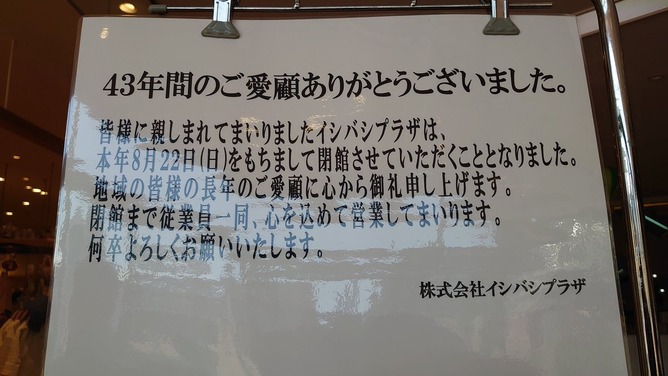 43年間のご愛顧ありがとうございました。
皆様に親しまれてまいりましたイシバシプラザは、
本年8月22日(日)をもちまして閉館させていただくこととなりました。
地域の皆様の長年のご愛顧に心から御礼申し上げます。
閉館まで従業員一同、心を込めて営業してまいります。
何卒よろしくお願いいたします。
株式会社イシバシプラザ